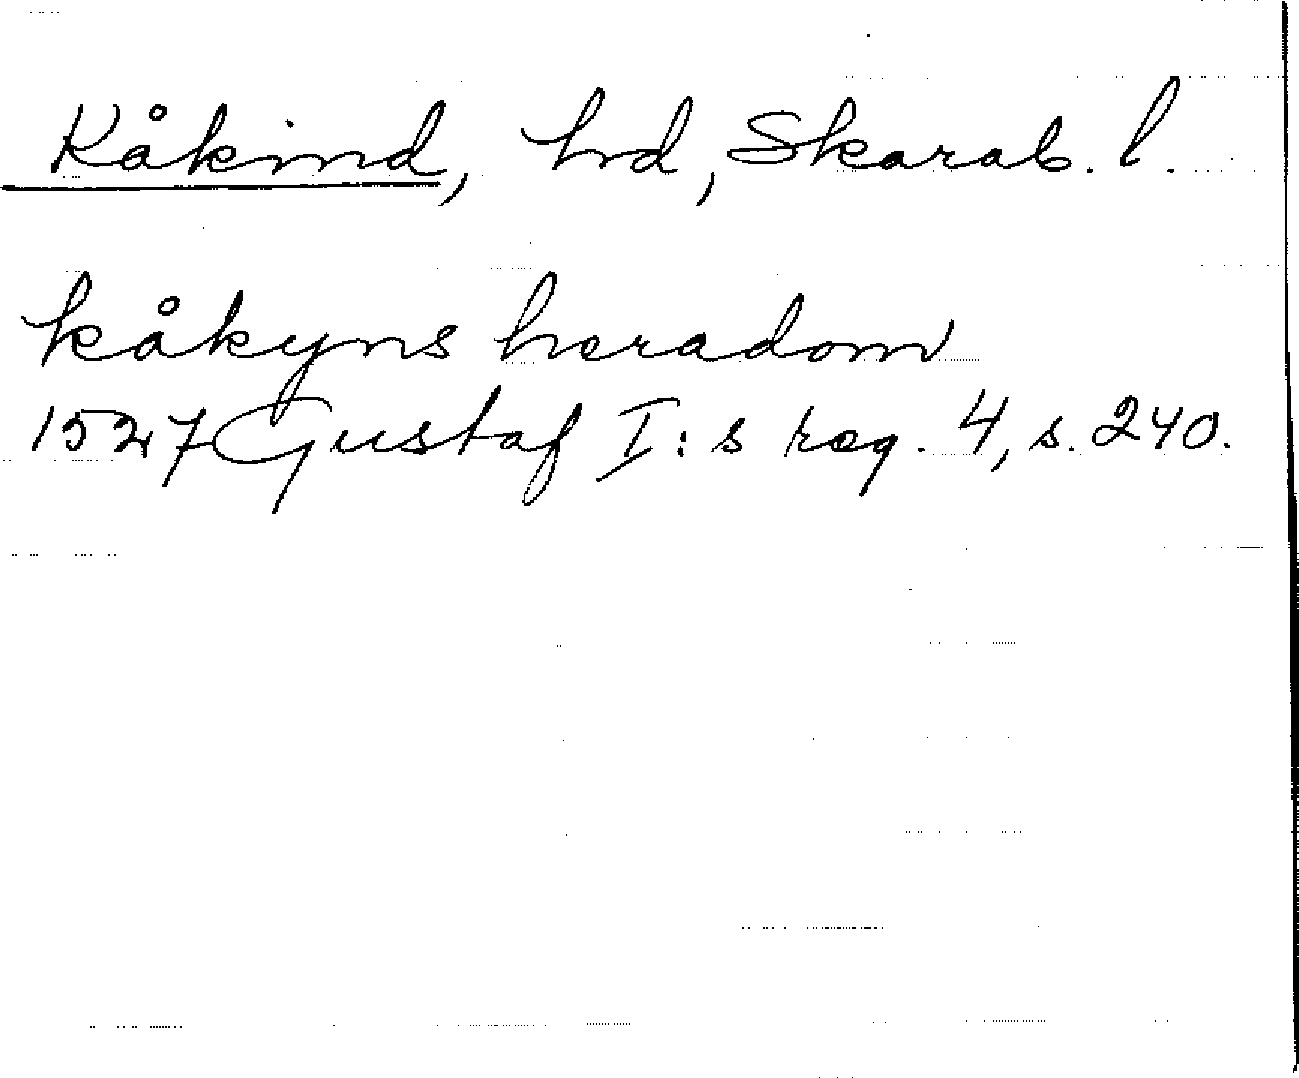 Kåkind, hrd, Skarab. l.
kåkyns heradom
1527 Gustaf I:s reg. 4, s. 240.